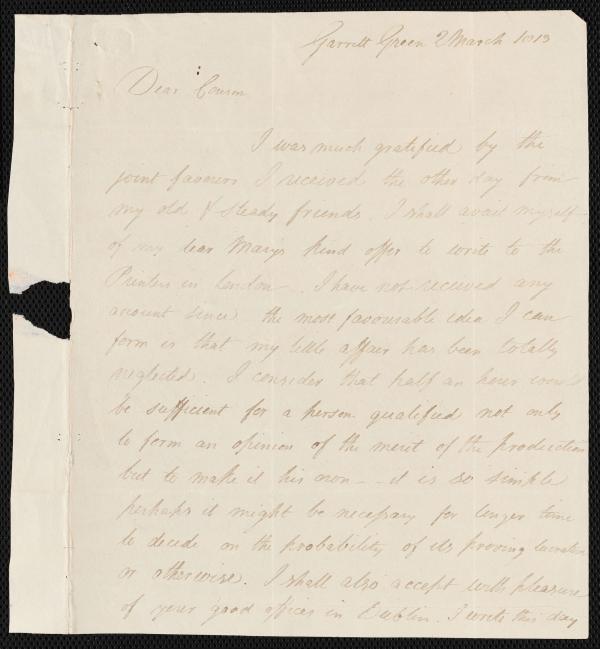 Garrett Green 2 March 1813
Dear Cousin
I was much gratified by the
joint favours I received the other day from
my old & steady friends. I shall avail myself
of my dear Mary's kind offer to write to the
Printers in London -. I have not received any
account since the most favourable idea I can
form is that my little affair has been totally
neglected. I consider that half an hour would
be sufficient for a person qualified not only
to form an opinion of the merit of the production
but to make it his own -- it is so simple
perhaps it might be necessary for longer time
to decide on the probability of its proving lucrative
or otherwise. I shall also accept with pleasure
of your good offices in Dublin. I write this day